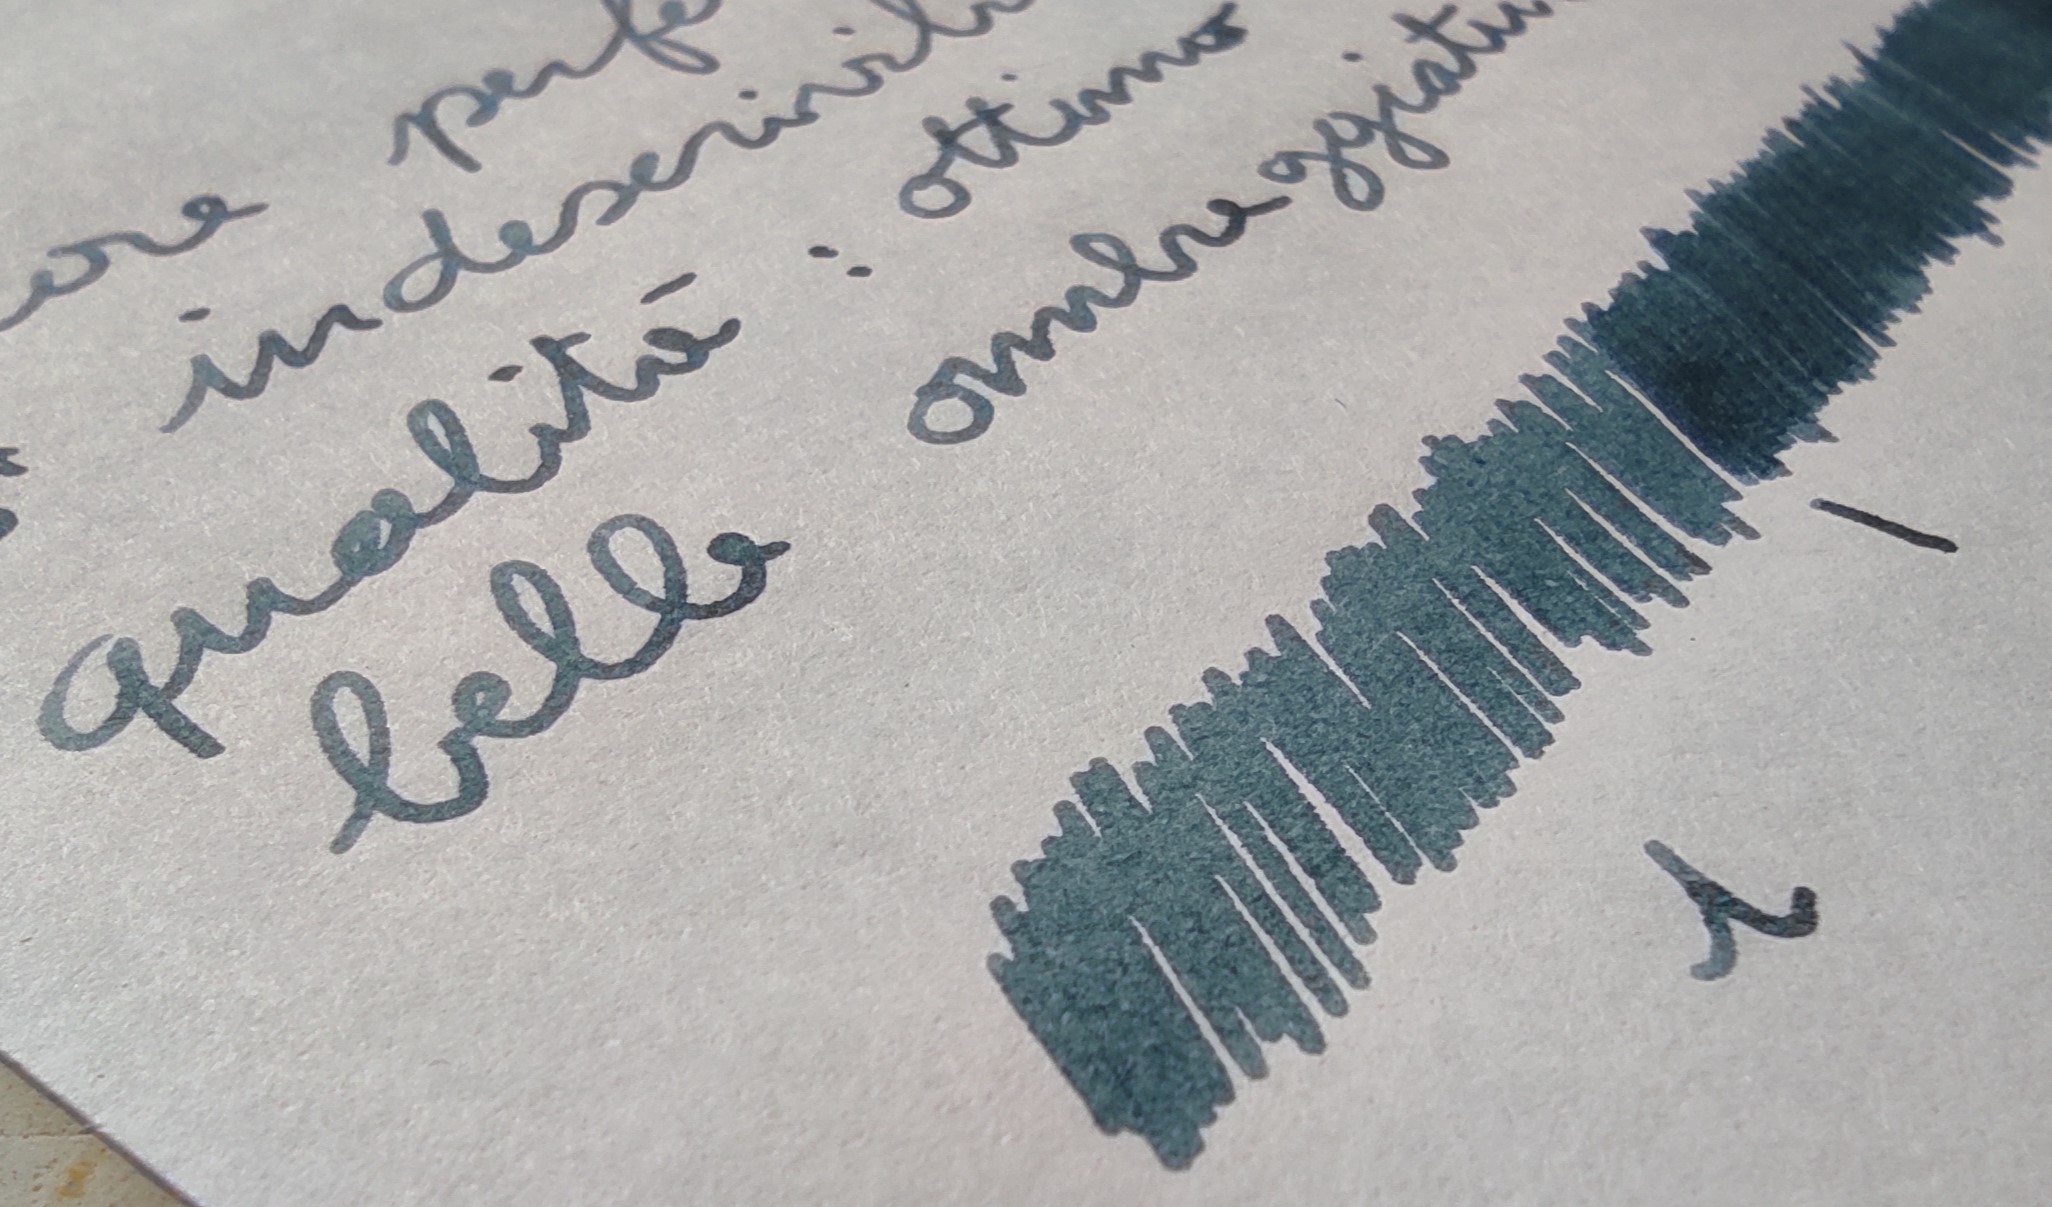 ore perfe
indescrivib
qualità : ottimo
bella ombreggiatur